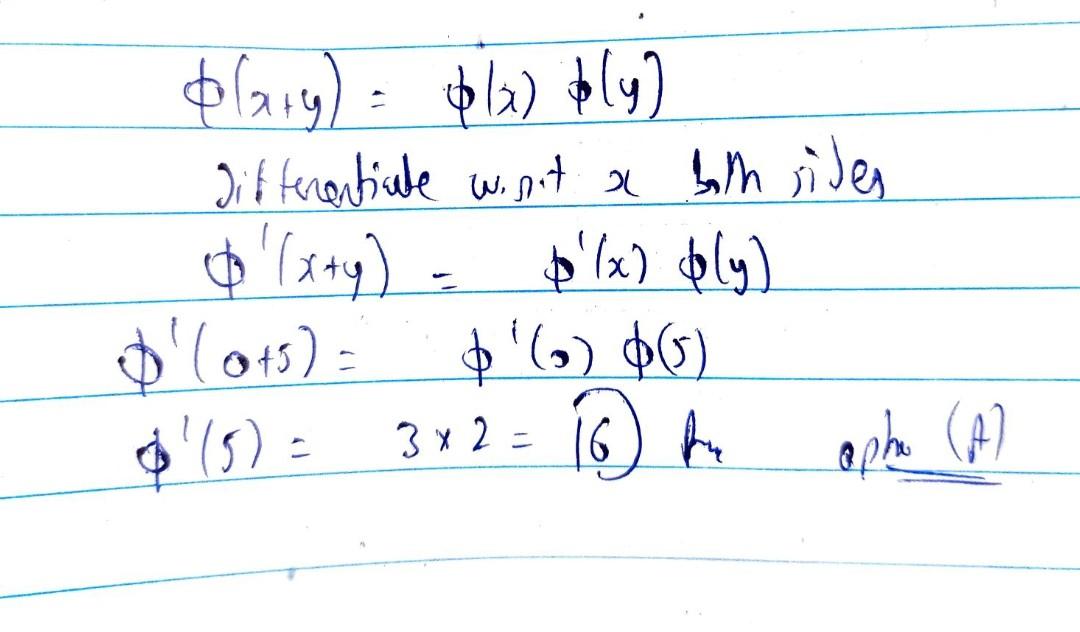 ϕ(x+y) = ϕ(x) ϕ(y)
Differentiate w.r.t x both sides
ϕ'(x+y) = ϕ'(x) ϕ(y)
ϕ'(0+5) = ϕ'(0) ϕ(5)
ϕ'(5) = 3 x 2 = 6 (A)